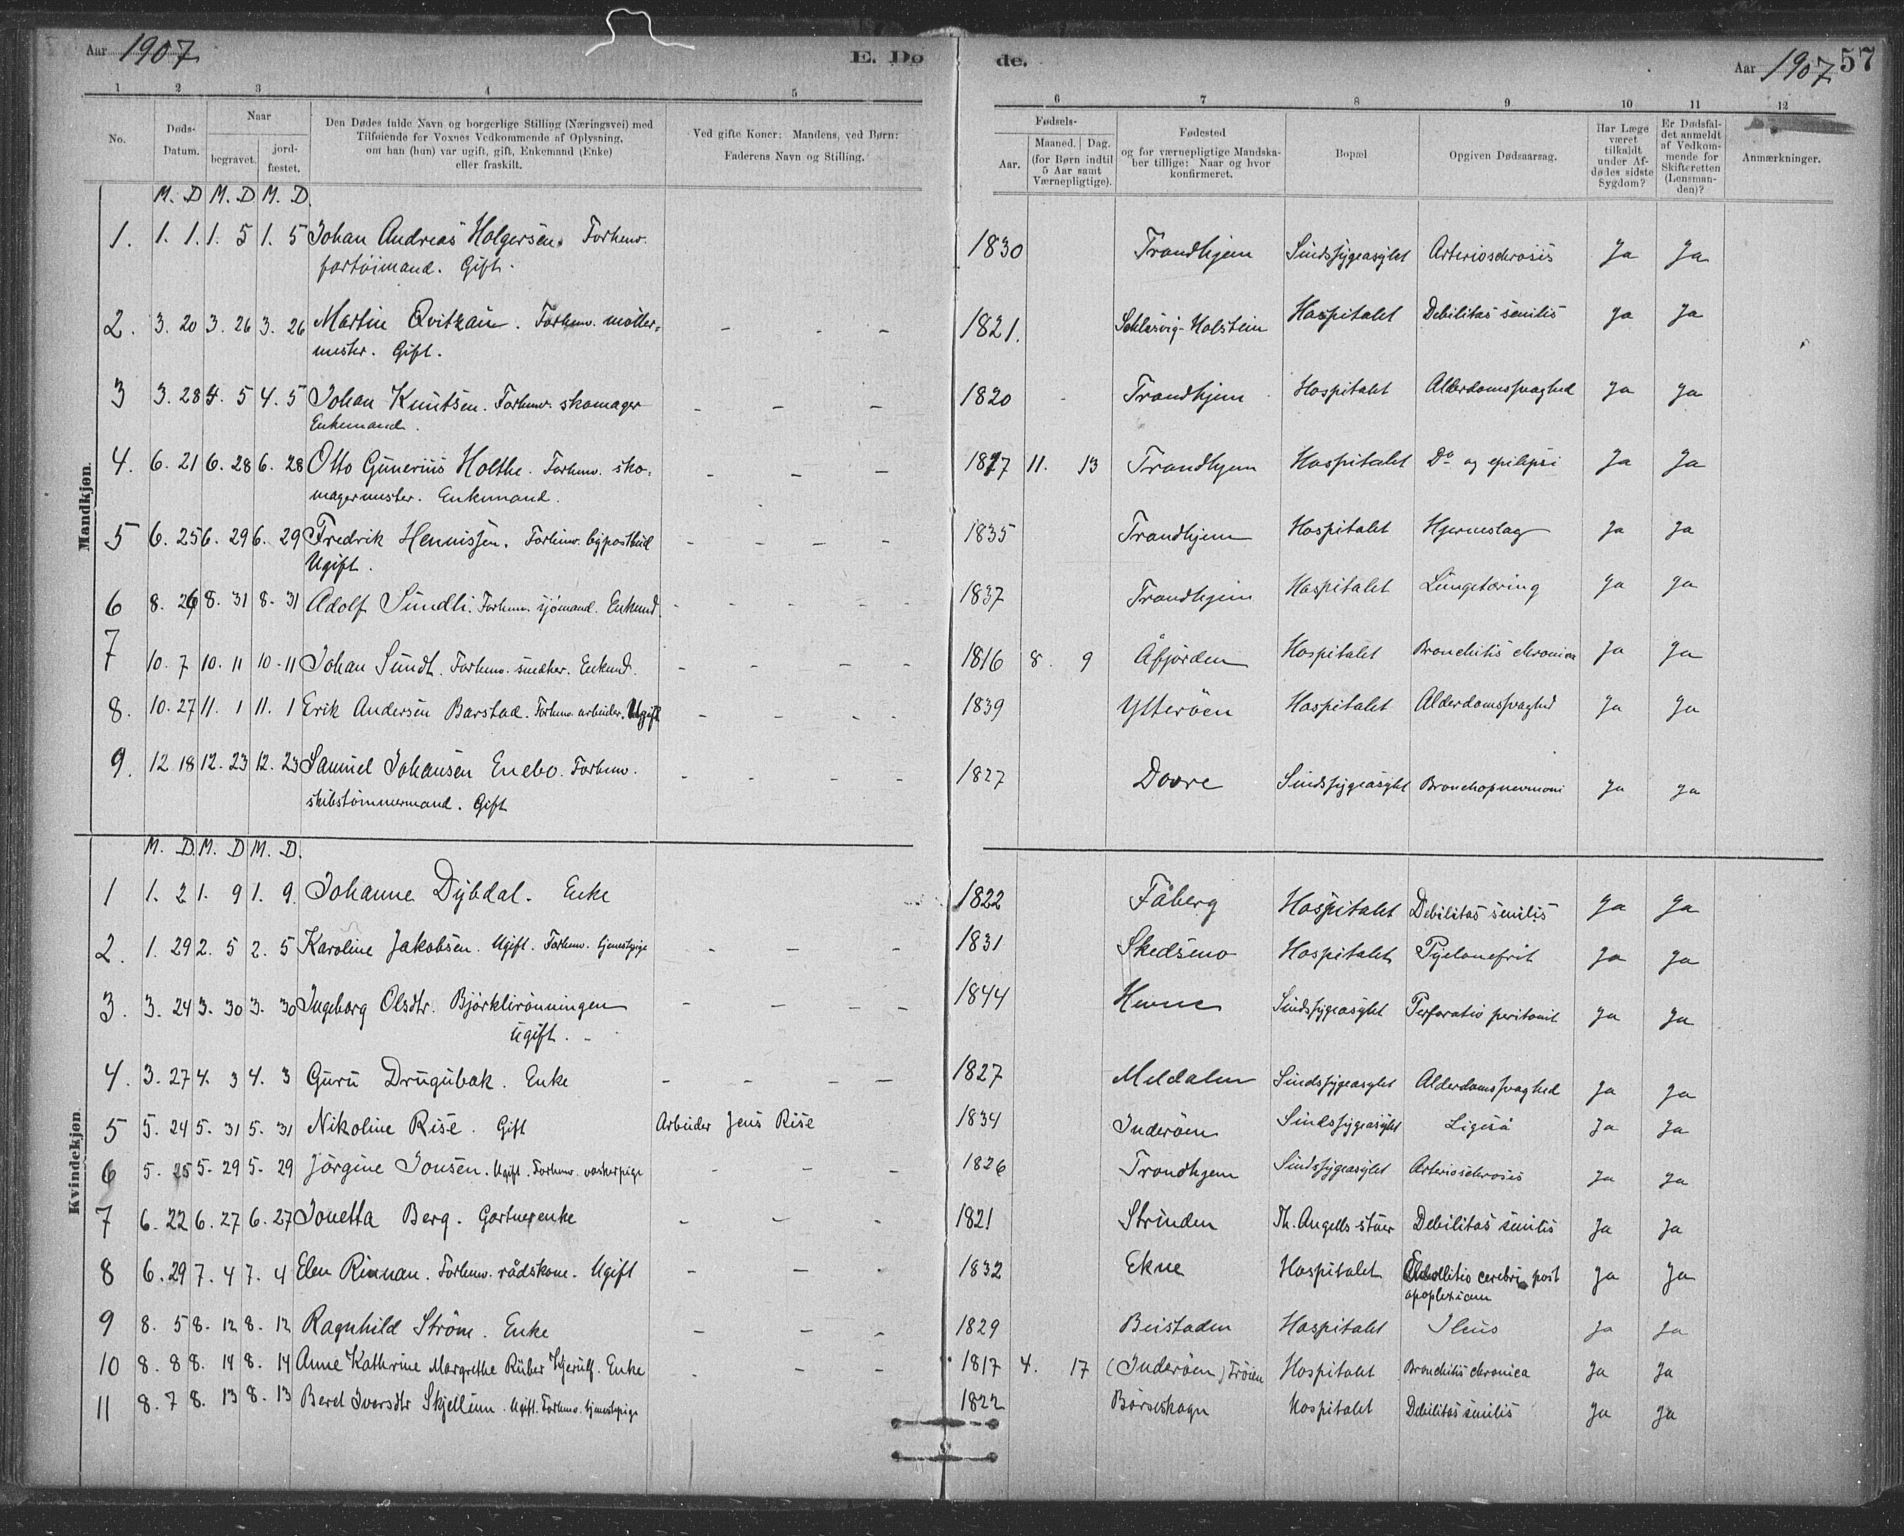 Aar 1907 E. Dø de. Aar 1907 57
1 2 3 4 5 6 7 8 9 10 11 12
No. Døds-Datum. Naar begravet. jordfæstet. Den Dødes fulde Navn og borgerlige Stilling (Næringsvei) med Tilføiende for Voxnes Vedkommende af Oplysning, om han (hun) var ugift, gift, Enkemand (Enke) eller fraskilt. Ved gifte Koner: Mandens, ved Børn: Faderens Navn og Stilling. Fødsels- Aar. Maaned. Dag. (for Børn indtil 5 Aar samt Værnepligtige). Fødested og for værnepligtige Mandskaber tillige: Naar og hvor konfirmeret. Bopæl Opgiven Dødsaarsag. Har Læge været tilkaldt under Afdødes sidste Sygdom? Er Dødsfaldet anmeldt af Vedkommende for Skifteretten (Lensmanden)? Anmærkninger.
Mandkjøn.
M. D M. D M. D.
1. 1. 1. 1. 5 1. 5 Johan Andreas Holgersen. Forhenv. 1830 Trondhjem Sindssygeasylet Arteriosclerosis Ja Ja
fartöimand. Gift.
2. 3. 20 3. 26 3. 26 Martin Qvitzau. Forhenv. möller= - - - 1821. Schlesvig-Holstein Hospitalet Debilitas senilis Ja Ja
mester. Gift.
3 3. 28 4. 5 4. 5 Johan Knutsen. Forhenv. skomager - - - 1820 - Trondhjem Hospitalet Alderdomssvaghed Ja Ja
Enkemand.
4. 6. 21 6. 28 6. 28 Otto Gunerius Holthe. Forhenv. sko= - - - 1817 11. 13 Trondhjem Hospitalet Do og epilepsi Ja Ja
magermester. Enkemand.
5 6. 25 6. 29 6. 29 Fredrik Hennissen. Forhenv. bypostbud - - - - 1835 Trondhjem Hospitalet Hjerneslag Ja Ja
Ugift.
6 8. 26 8. 31 8. 31 Adolf Sundli. Forhenv. sjömand. Enkemd. - - - - 1837 Trondhjem Hospitalet Lungetæring Ja Ja
7 10. 7 10. 11 10. 11 Johan Sundt. Forhenv. snedker. Enkemd. - - - - 1816 8. 9 Åfjorden Hospitalet Bronchitis chronica Ja Ja
8. 10. 27 11. 1 11. 1 Erik Andersen Barstad. Forhenv. arbeider. Ugift - - - - 1839 Ytterøen Hospitalet Alderdomssvaghed Ja Ja
9. 12. 18 12. 23 12. 23 Samuel Johansen Enebo. Forhenv. - - - - 1827 Dovre Sindssygeasylet Bronchopneumoni Ja Ja
skibstömmermand. Gift
Kvindekjøn.
M. D. M. D M. D.
1 1. 2 1. 9 1. 9. Johanne Dybdal. Enke 1822 Fåberg Hospitalet Debilitas senilis Ja Ja
2. 1. 29 2. 5 2. 5 Karoline Jakobsen. Ugift. Forhenv. tjenestepige - - - 1831 Skedsmo Hospitalet Pyelonefrit Ja Ja
3. 3. 24 3. 30 3. 30 Ingeborg Olsdtr. Björklirönningen - - - - 1844 Hevne Sindssygeasylet Perforatio peritonit Ja Ja
Ugift.
4. 3. 27 4. 3 4. 3 Guru Drugubak. Enke - - - - 1827 Meldalen Sindssygeasylet Alderdomssvaghed Ja Ja
5 5. 24 5. 31 5. 31 Nikoline Rise. Gift Arbeider Jens Rise 1834 Inderöen Sindssygeasylet Ligeså Ja Ja
6 5. 25 5. 29 5. 29 Jörgine Jonsen. Ugift. Forhenv. vaskerpige - - - 1826 Trondhjem Sindssygeasylet Arteriosclerosis Ja Ja
7 6. 22 6. 27 6. 27 Jonetta Berg. Gartnerenke - - - 1821 Strinden Th. Angells stuer Debilitas senilis Ja Ja
8 6. 29 7. 4 7. 4 Elen Rinnan. Forhenv. rådskone. Ugift - - - 1832 Ekne Hospitalet Emollitio cerebri post Ja Ja
apoplexiam
9 8. 5 8. 12 8. 12 Ragnhild Ström. Enke - - - 1829 Beistaden Hospitalet Ileus Ja Ja
10 8. 8 8. 14 8. 14 Anne Kathrine Margrethe Rüber Kjerulf. Enke - - - 1817 4. 17 (Inderöen) Hospitalet Bronchitis chronica Ja Ja
11 8. 7 8. 13 8. 13 Beret Iversdtr Skjellum. Ugift. Forhenv. tjenestepige 1822 Börseskogn Hospitalet Debilitas senilis Ja Ja